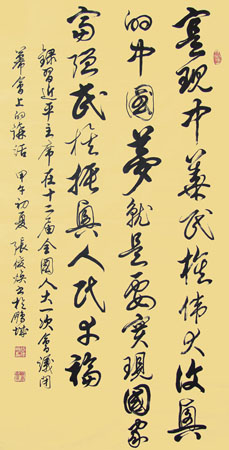 實現中華民族偉大復興
的中國夢就是要實現國家
富強民族振興人民幸福
錄習近平主席在十二届全國人大一次會議閉
幕會上的講話 甲午初夏 張俊書於鵬城